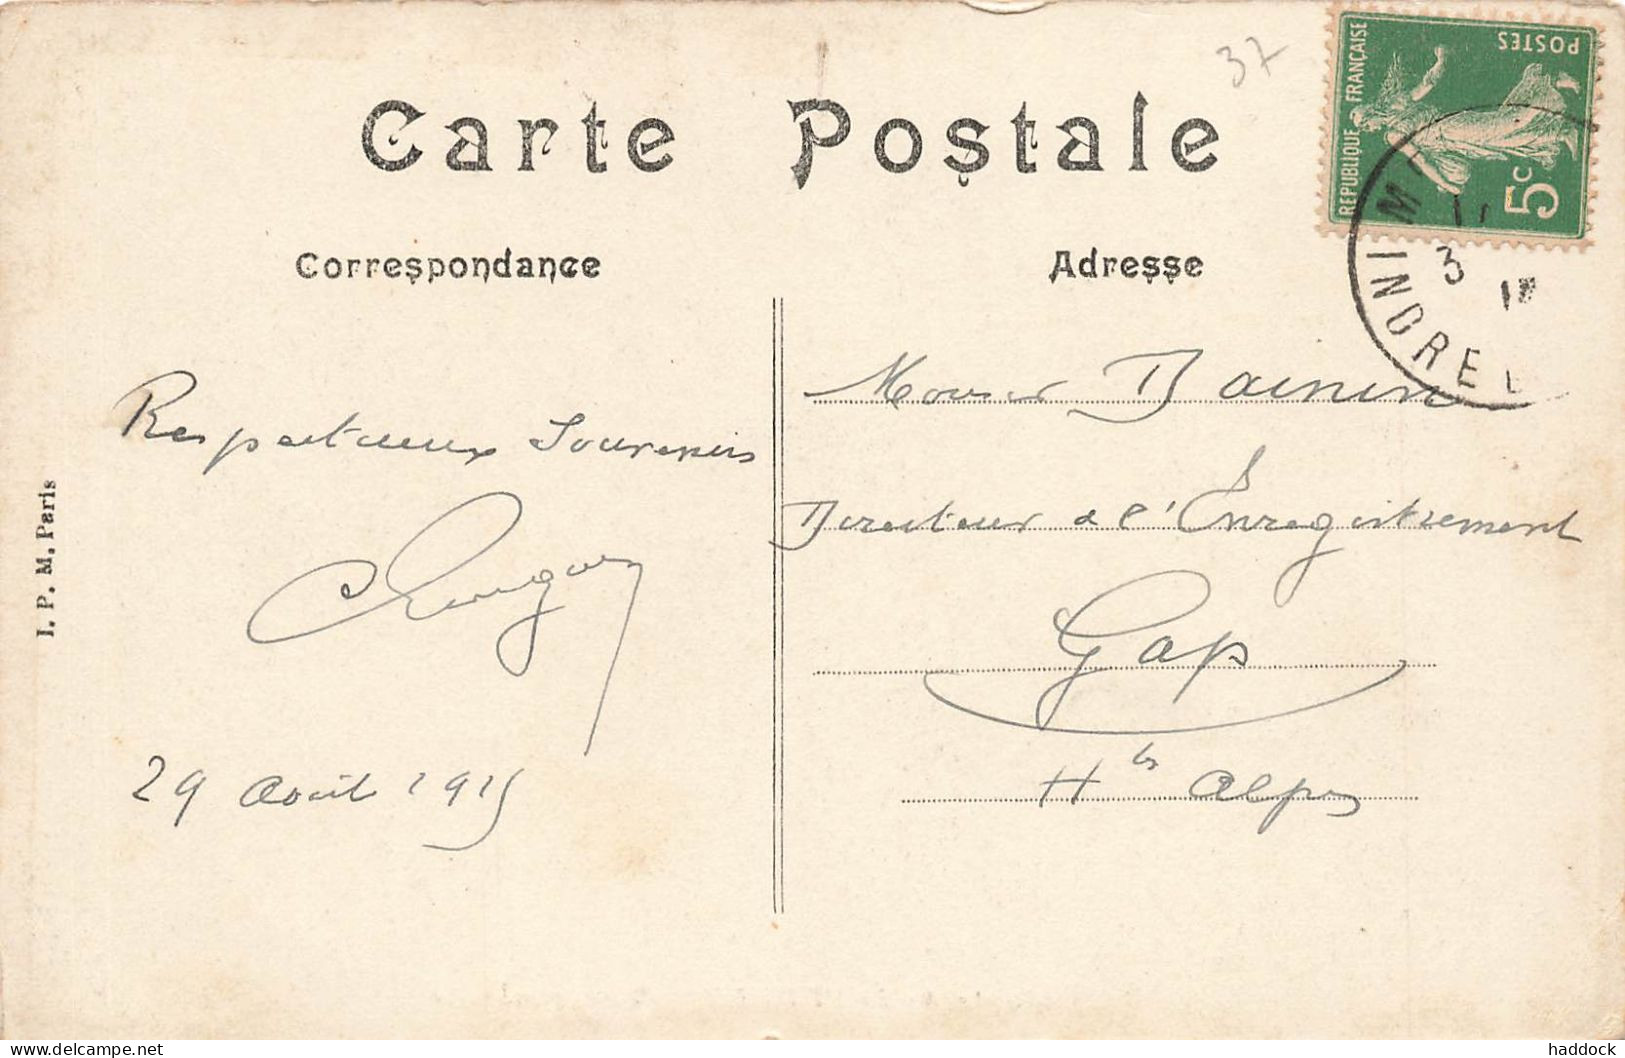 Carte Postale
37
REPUBLIQUE FRANÇAISE
POSTES
5c
INDRE
3
Correspondance
Adresse
Respectueux Souvenirs
29 août 1915
Monsieur
Directeur de l'Enregistrement
Gap
Htes Alpes
I. P. M. Paris
delcampe.net
haddock